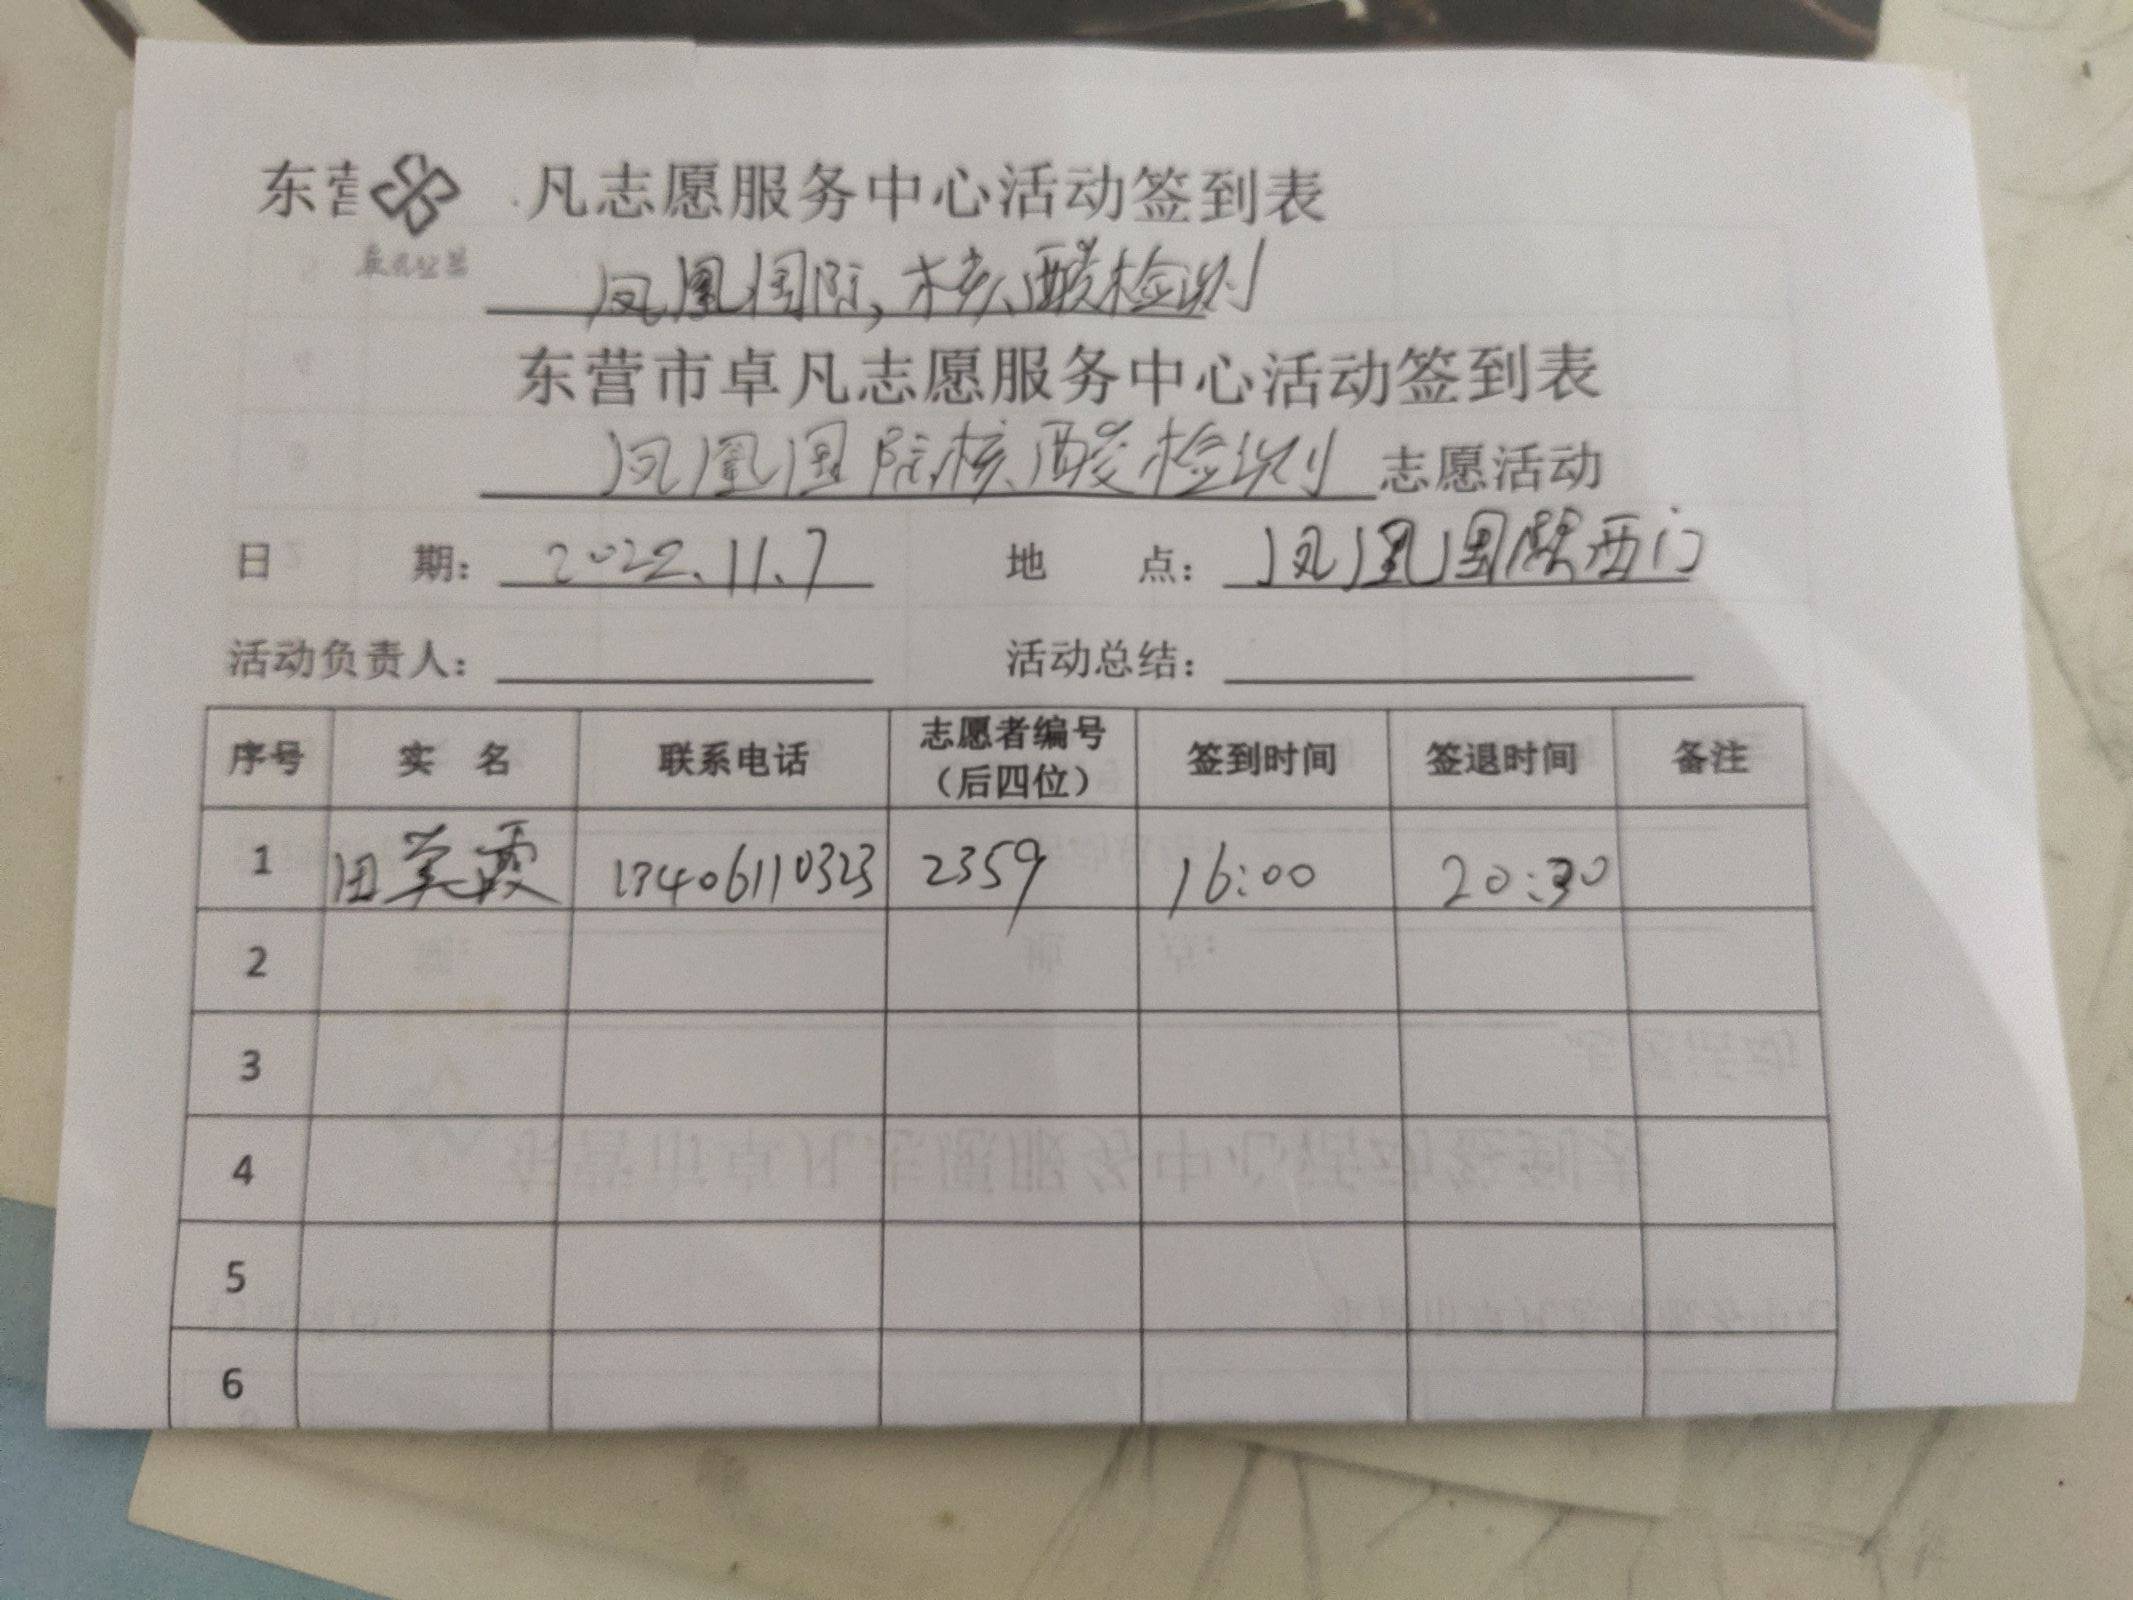 东营 凡志愿服务中心活动签到表
卓凡公益
凤凰国际,核酸检测
东营市卓凡志愿服务中心活动签到表
凤凰国际核酸检测 志愿活动
日 期: 2022.11.7 地 点: 凤凰国际西门
活动负责人: 活动总结:
序号 实 名 联系电话 志愿者编号(后四位) 签到时间 签退时间 备注
1 田英霞 13406110323 2359 16:00 20:30
2
3
4
5
6